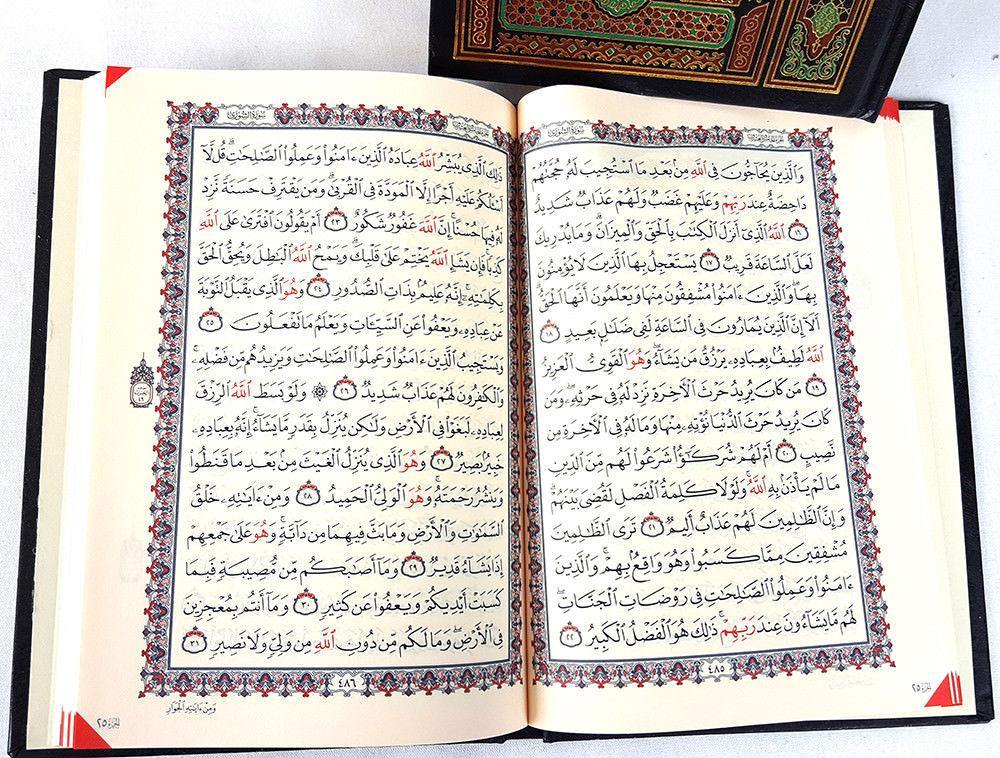 الجزء الخامس والعشرون سورة الشورى
وَٱلَّذِينَ يُحَآجُّونَ فِى ٱللَّهِ مِنۢ بَعْدِ مَا ٱسْتُجِيبَ لَهُۥ حُجَّتُهُمْ
دَاحِضَةٌ عِندَ رَبِّهِمْ وَعَلَيْهِمْ غَضَبٌ وَلَهُمْ عَذَابٌ شَدِيدٌ
١٦ ٱللَّهُ ٱلَّذِىٓ أَنزَلَ ٱلْكِتَٰبَ بِٱلْحَقِّ وَٱلْمِيزَانَۗ وَمَا يُدْرِيكَ
لَعَلَّ ٱلسَّاعَةَ قَرِيبٌ ١٧ يَسْتَعْجِلُ بِهَا ٱلَّذِينَ لَا يُؤْمِنُونَ
بِهَاۖ وَٱلَّذِينَ ءَامَنُوا۟ مُشْفِقُونَ مِنْهَا وَيَعْلَمُونَ أَنَّهَا ٱلْحَقُّۗ
أَلَآ إِنَّ ٱلَّذِينَ يُمَارُونَ فِى ٱلسَّاعَةِ لَفِى ضَلَٰلٍۭ بَعِيدٍ ١٨
ٱللَّهُ لَطِيفٌۢ بِعِبَادِهِۦ يَرْزُقُ مَن يَشَآءُۖ وَهُوَ ٱلْقَوِىُّ ٱلْعَزِيزُ
١٩ مَن كَانَ يُرِيدُ حَرْثَ ٱلْءَاخِرَةِ نَزِدْ لَهُۥ فِى حَرْثِهِۦۖ وَمَن
كَانَ يُرِيدُ حَرْثَ ٱلدُّنْيَا نُؤْتِهِۦ مِنْهَا وَمَا لَهُۥ فِى ٱلْءَاخِرَةِ مِن
نَّصِيبٍ ٢٠ أَمْ لَهُمْ شُرَكَٰٓؤُا۟ شَرَعُوا۟ لَهُم مِّنَ ٱلدِّينِ
مَا لَمْ يَأْذَنۢ بِهِ ٱللَّهُۚ وَلَوْلَا كَلِمَةُ ٱلْفَصْلِ لَقُضِىَ بَيْنَهُمْۗ
وَإِنَّ ٱلظَّٰلِمِينَ لَهُمْ عَذَابٌ أَلِيمٌ ٢١ تَرَى ٱلظَّٰلِمِينَ
مُشْفِقِينَ مِمَّا كَسَبُوا۟ وَهُوَ وَاقِعٌۢ بِهِمْۗ وَٱلَّذِينَ
ءَامَنُوا۟ وَعَمِلُوا۟ ٱلصَّٰلِحَٰتِ فِى رَوْضَاتِ ٱلْجَنَّاتِۖ
لَهُم مَّا يَشَآءُونَ عِندَ رَبِّهِمْۚ ذَٰلِكَ هُوَ ٱلْفَضْلُ ٱلْكَبِيرُ ٢٢
٤٨٥
الجزء ٢٥
الجزء الخامس والعشرون سورة الشورى
ذَٰلِكَ ٱلَّذِى يُبَشِّرُ ٱللَّهُ عِبَادَهُ ٱلَّذِينَ ءَامَنُوا۟ وَعَمِلُوا۟ ٱلصَّٰلِحَٰتِۗ قُل لَّآ
أَسْـَٔلُكُمْ عَلَيْهِ أَجْرًا إِلَّا ٱلْمَوَدَّةَ فِى ٱلْقُرْبَىٰۗ وَمَن يَقْتَرِفْ حَسَنَةً نَّزِدْ
لَهُۥ فِيهَا حُسْنًاۚ إِنَّ ٱللَّهَ غَفُورٌ شَكُورٌ ٢٣ أَمْ يَقُولُونَ ٱفْتَرَىٰ عَلَى ٱللَّهِ
كَذِبًاۖ فَإِن يَشَإِ ٱللَّهُ يَخْتِمْ عَلَىٰ قَلْبِكَۗ وَيَمْحُ ٱللَّهُ ٱلْبَٰطِلَ وَيُحِقُّ ٱلْحَقَّ
بِكَلِمَٰتِهِۦٓۚ إِنَّهُۥ عَلِيمٌۢ بِذَاتِ ٱلصُّدُورِ ٢٤ وَهُوَ ٱلَّذِى يَقْبَلُ ٱلتَّوْبَةَ
عَنْ عِبَادِهِۦ وَيَعْفُوا۟ عَنِ ٱلسَّيِّـَٔاتِ وَيَعْلَمُ مَا تَفْعَلُونَ ٢٥
وَيَسْتَجِيبُ ٱلَّذِينَ ءَامَنُوا۟ وَعَمِلُوا۟ ٱلصَّٰلِحَٰتِ وَيَزِيدُهُم مِّن فَضْلِهِۦۚ
وَٱلْكَٰفِرُونَ لَهُمْ عَذَابٌ شَدِيدٌ ٢٦ ۞ وَلَوْ بَسَطَ ٱللَّهُ ٱلرِّزْقَ
لِعِبَادِهِۦ لَبَغَوْا۟ فِى ٱلْأَرْضِ وَلَٰكِن يُنَزِّلُ بِقَدَرٍ مَّا يَشَآءُۚ إِنَّهُۥ بِعِبَادِهِۦ
خَبِيرٌۢ بَصِيرٌ ٢٧ وَهُوَ ٱلَّذِى يُنَزِّلُ ٱلْغَيْثَ مِنۢ بَعْدِ مَا قَنَطُوا۟
وَيَنشُرُ رَحْمَتَهُۥۚ وَهُوَ ٱلْوَلِىُّ ٱلْحَمِيدُ ٢٨ وَمِنْ ءَايَٰتِهِۦ خَلْقُ
ٱلسَّمَٰوَٰتِ وَٱلْأَرْضِ وَمَا بَثَّ فِيهِمَا مِن دَآبَّةٍۚ وَهُوَ عَلَىٰ جَمْعِهِمْ
إِذَا يَشَآءُ قَدِيرٌ ٢٩ وَمَآ أَصَٰبَكُم مِّن مُّصِيبَةٍ فَبِمَا
كَسَبَتْ أَيْدِيكُمْ وَيَعْفُوا۟ عَن كَثِيرٍ ٣٠ وَمَآ أَنتُم بِمُعْجِزِينَ
فِى ٱلْأَرْضِۖ وَمَا لَكُم مِّن دُونِ ٱللَّهِ مِن وَلِىٍّ وَلَا نَصِيرٍ ٣١
٤٨٦
وَمِنْ ءَايَٰتِهِ ٱلْجَوَارِ
الجزء ٢٥